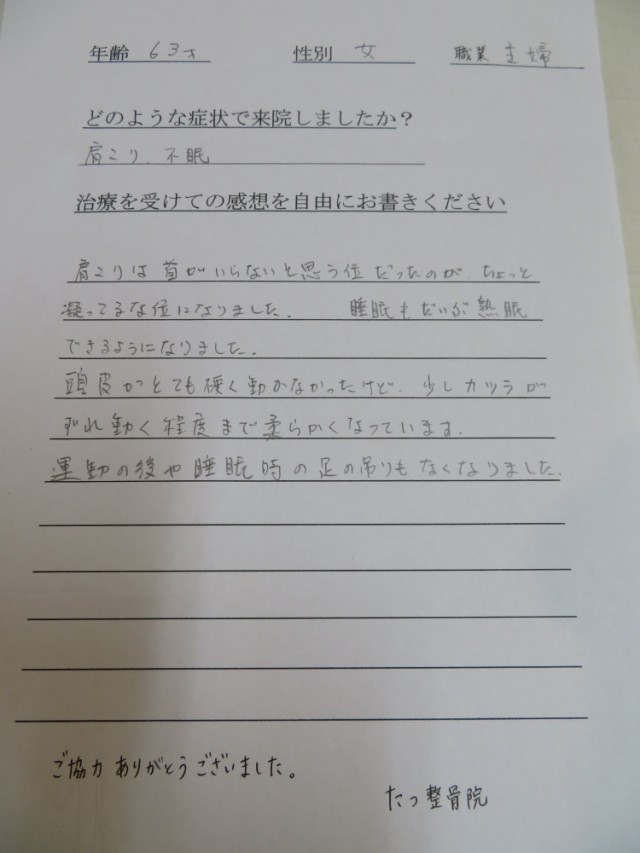 年齢 63才 性別 女 職業 主婦
どのような症状で来院しましたか?
肩こり、不眠
治療を受けての感想を自由にお書きください
肩こりは首がいらないと思う位だったのが、ちょっと
凝ってるな位になりました。 睡眠もだいぶ熟眠
できるようになりました。
頭皮がとても硬く動かなかったけど、少しカツラが
ずれ動く程度まで柔らかくなっています。
運動の後や睡眠時の足の吊りもなくなりました。
ご協力ありがとうございました。
たつ整骨院